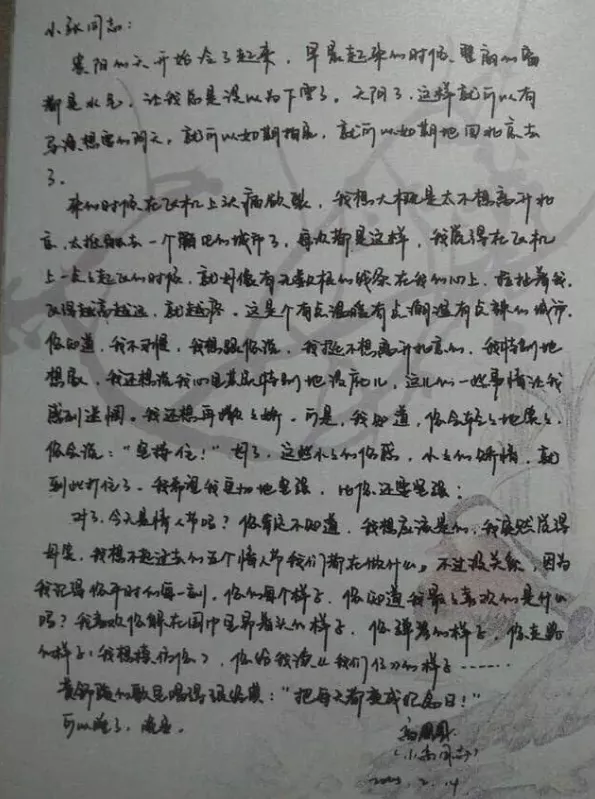 小张同志：
的天开始冷了起来，早晨起来的时候，的窗
都是水气，让我总是误以为下雪了。天阴了，这样就可以有
导演想要的阴天，就可以如期拍，就可以如期地回北京去
了。
来的时候在飞机上头痛欲裂，我想大概是太不想离开北
京，太去一个陌生的城市了，每次都是这样，我觉得在飞机
上一点点起飞的时候，就好像有无数根的线系在我的心上，拉扯着我，
飞得越高越远，就越疼。这是个有点温暖有点潮湿有点辣的城市，
你知道，我不习惯，我想跟你说，我挺不想离开北京的，我特别地
想家，我还想说我心里其实特别地没底儿，这儿的一些事情让我
感到迷惘。我还想再撒撒娇。可是，我知道，你会轻轻地笑笑，
你会说：“坚持住！”好了，这些小小的伤感，小小的矫情，就
到此打住了。我希望我更加地坚强，比你还要坚强；
对了，今天是情人节吗？你肯定不知道，我想应该是的，我突然觉得
好笑，我想不起过去的五个情人节我们都在做什么。不过没关系，因为
我记得你平时的每一刻，你的每个样子，你知道我最喜欢的是什么
吗？我喜欢你躲在围巾里着头的样子，你弹琴的样子，你走路
的样子（我想模仿你），你给我读《我们仨》的样子……
黄舒骏的歌里唱得很经典：“把每天都变成纪念日！”
可以睡了，晚安。
高圆圆
（小高同志）
2.14